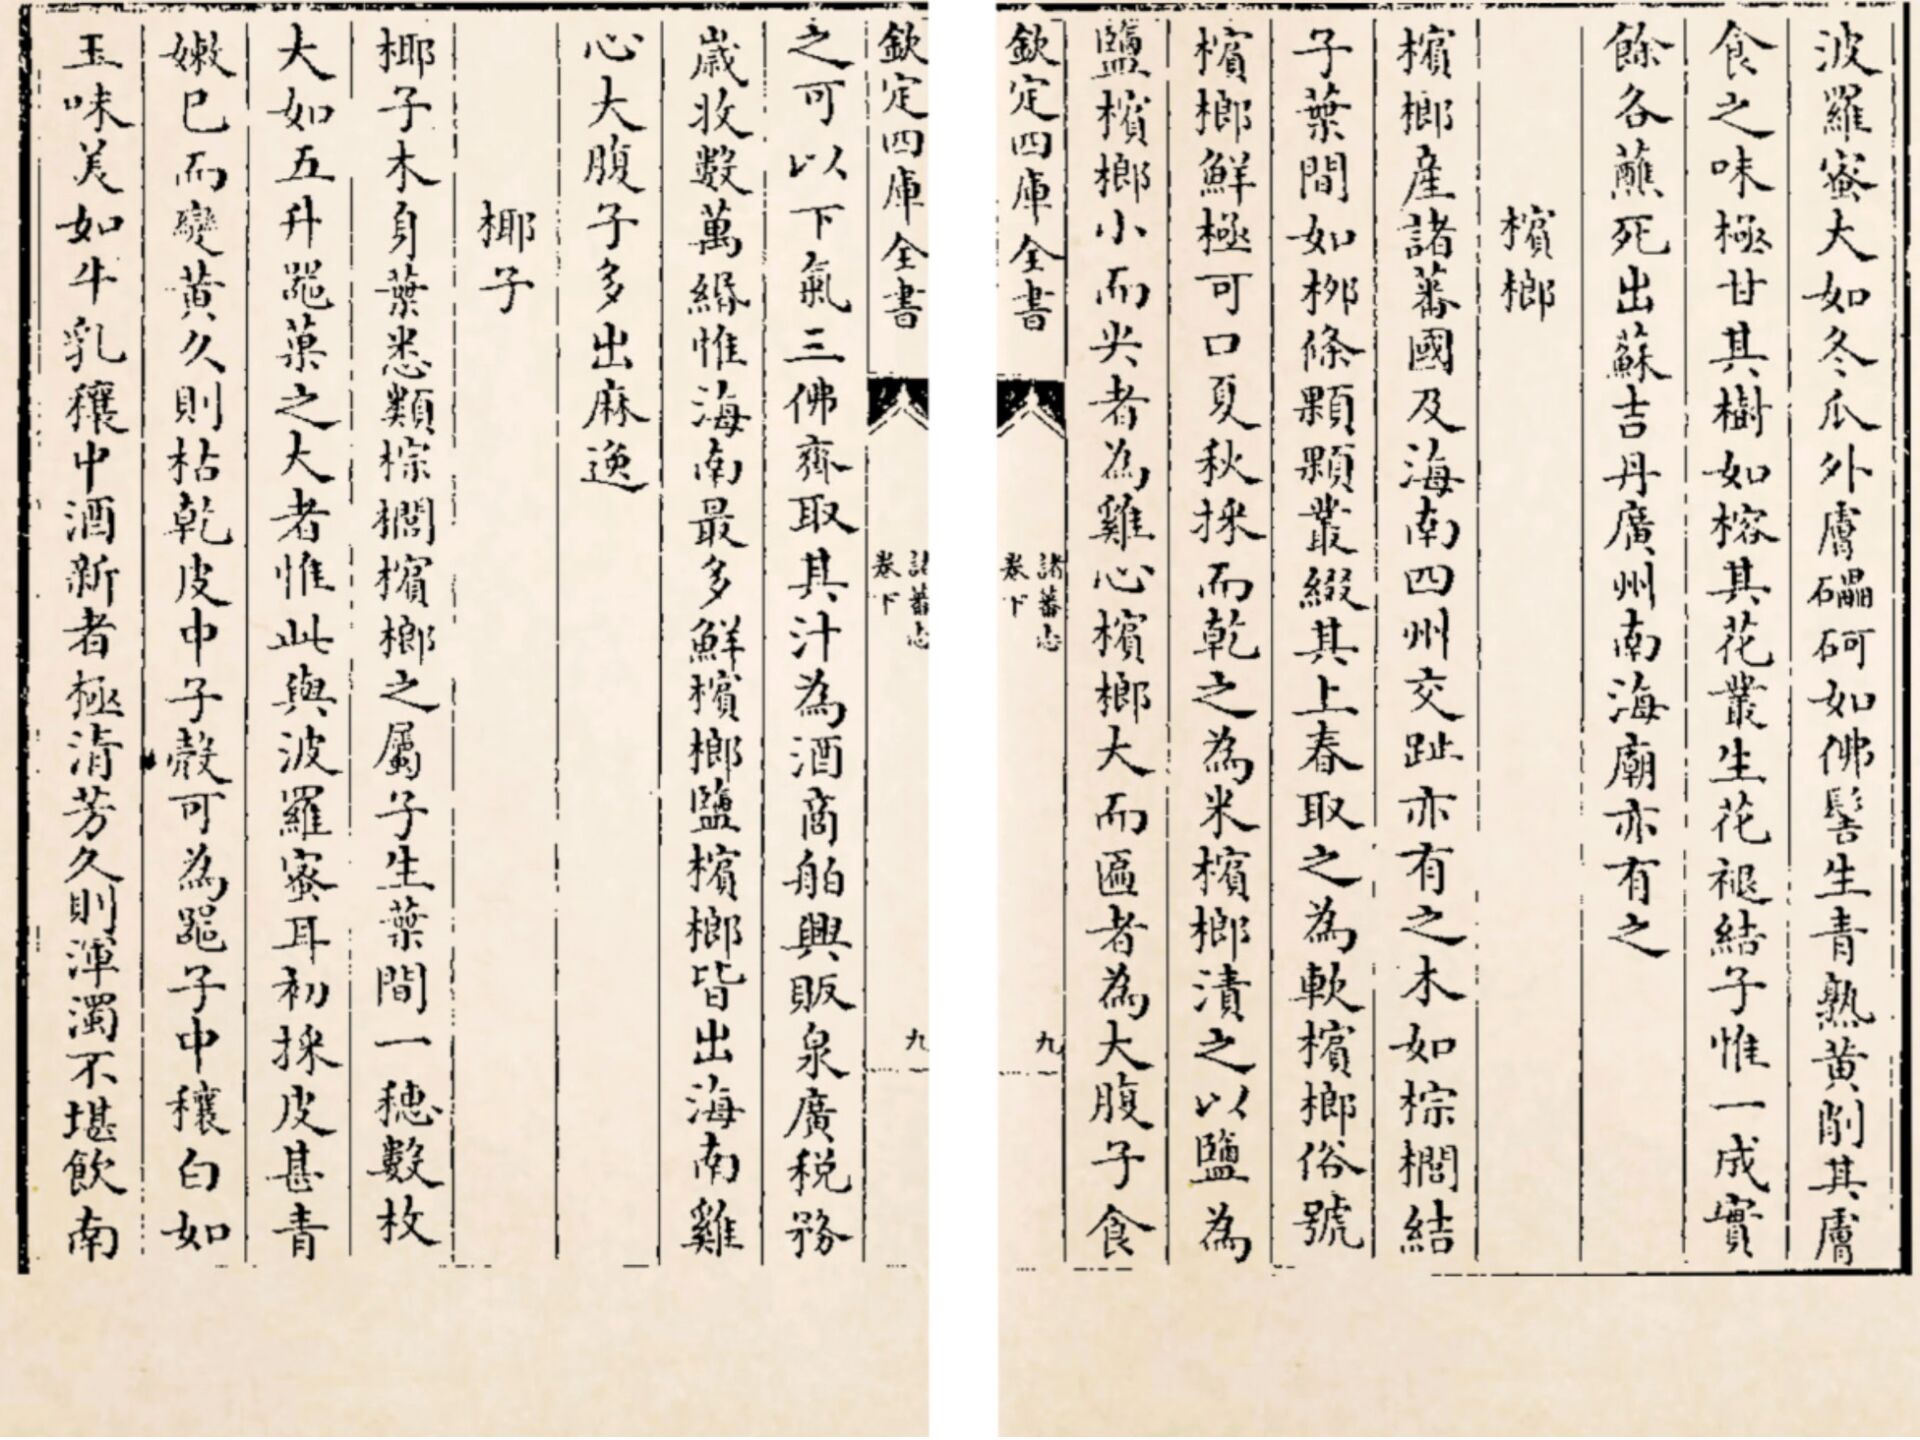 波羅蜜大如冬瓜外膚礧砢如佛髻生青熟黃削其膚
食之味極甘其樹如榕其花叢生花褪結子惟一成實
餘各蘸死出蘇吉丹廣州南海廟亦有之
檳榔
檳榔產諸蕃國及海南四州交趾亦有之木如棕櫚結
子葉間如柳條顆顆叢綴其上春取之為軟檳榔俗號
檳榔鮮極可口夏秋採而乾之為米檳榔漬之以鹽為
鹽檳榔小而尖者為雞心檳榔大而匾者為大腹子食
欽定四庫全書
諸蕃志
卷下
九
欽定四庫全書
諸蕃志
卷下
九
之可以下氣三佛齊取其汁為酒商舶興販泉廣稅務
歲收數萬緡惟海南最多鮮檳榔鹽檳榔皆出海南雞
心大腹子多出麻逸
椰子
椰子木身葉悉類棕櫚檳榔之屬子生葉間一穗數枚
大如五升器菓之大者惟此與波羅蜜耳初採皮甚青
嫩已而變黃久則枯乾皮中子殼可為器子中穰白如
玉味美如牛乳穰中酒新者極清芳久則渾濁不堪飲南